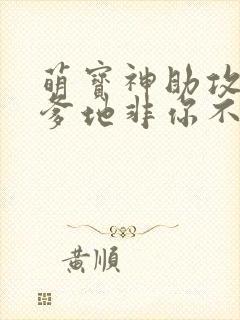 萌寳神助攻
爹地非你不
黃順